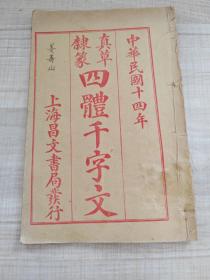 中華民國十四年
真草
隸篆
四體千字文
上海昌文書局發行
姜壽山